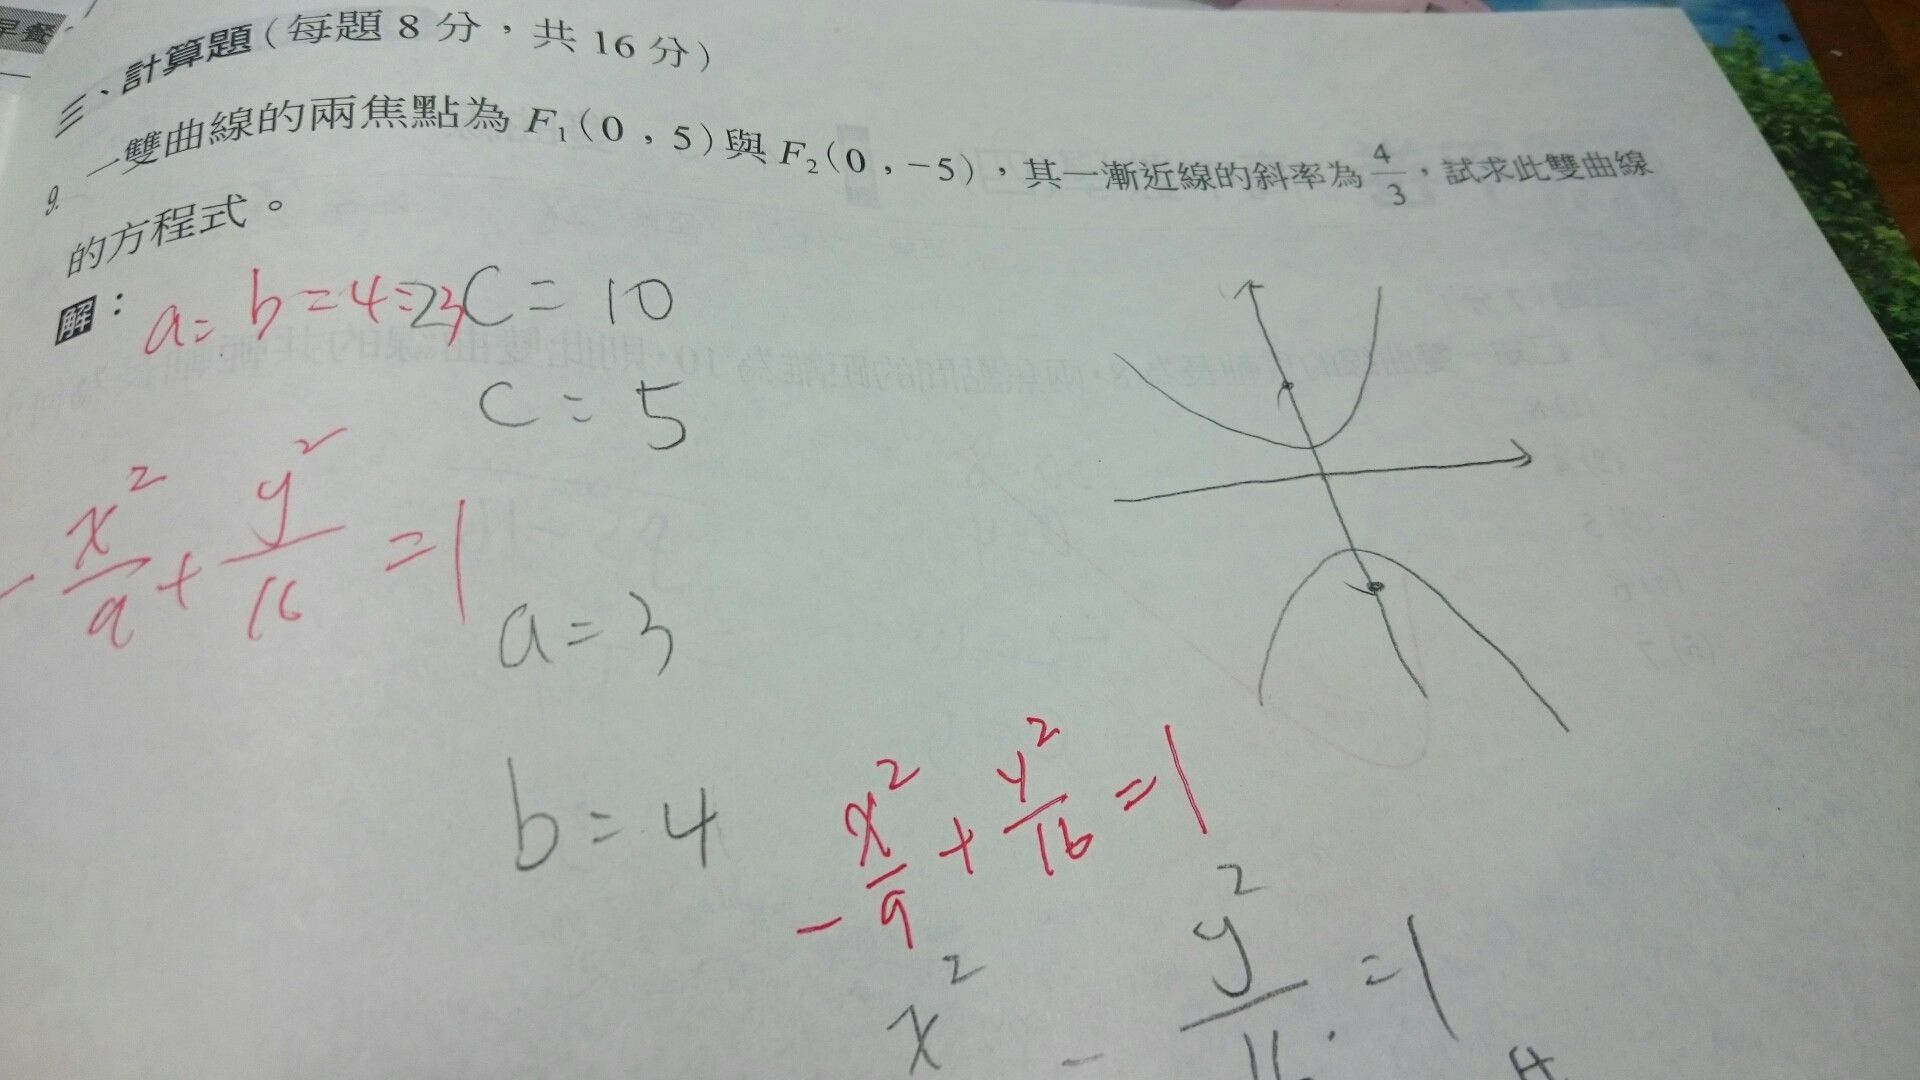 早餐
三、計算題(每題 8 分，共 16 分)
9. 一雙曲線的兩焦點為 F₁(0，5)與 F₂(0，-5)，其一漸近線的斜率為 4/3，試求此雙曲線
的方程式。
解：
a= b=4=3
2C=10
C=5
-x²/9+y²/16=1
a=3
b=4
-x²/9+y²/16=1
x² - y²/16=1